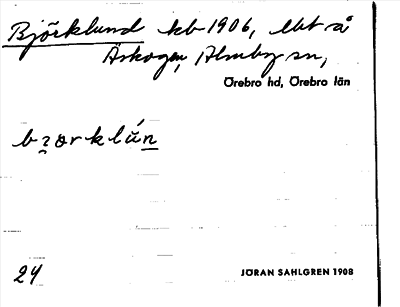 Björklund kb 1906, lht å
Åskogen, Almby sn,
Örebro hd, Örebro län
bɀorklún
24
JÖRAN SAHLGREN 1908